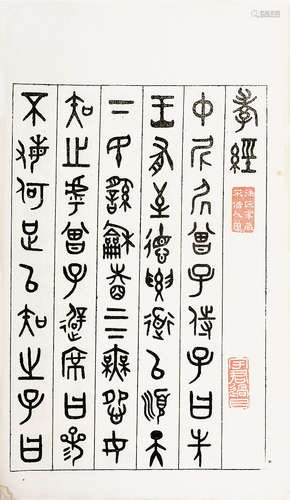 孝經
中尼凥曾子侍子曰先
王有至德要道以順天
下民用龢睦上下無怨女
知之乎曾子避席曰參
不敏何足以知之子曰